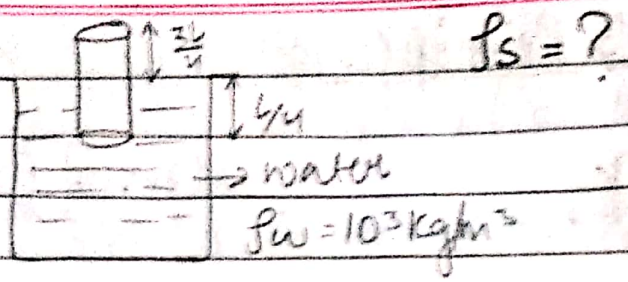 3L/4
ρs = ?
L/4
→ water
ρw = 10³ kg/m³